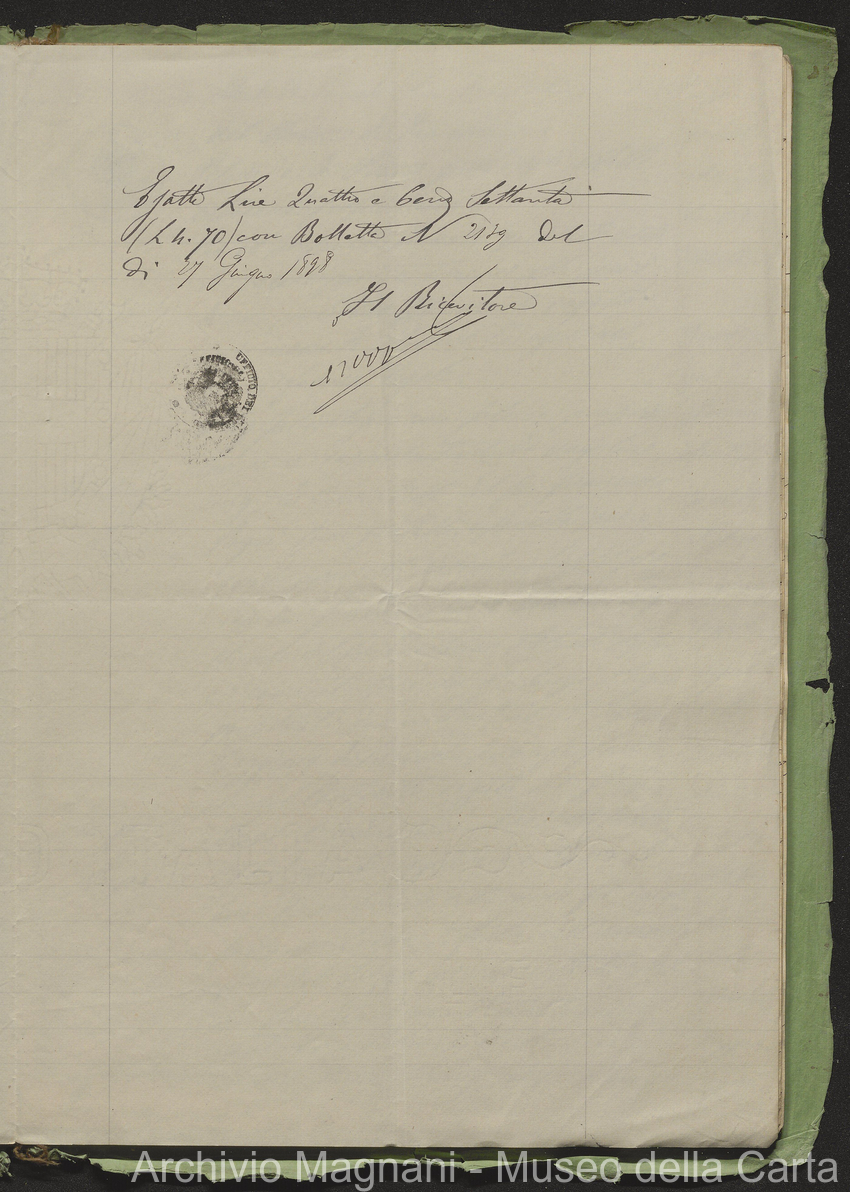 Esatte Lire Quattro e Cent Settanta
(L 4. 70) con Bolletta N 2149 del
di 27 Giugno 1898
Il Ricevitore
UFFICIO DEL
Archivio Magnani - Museo della Carta